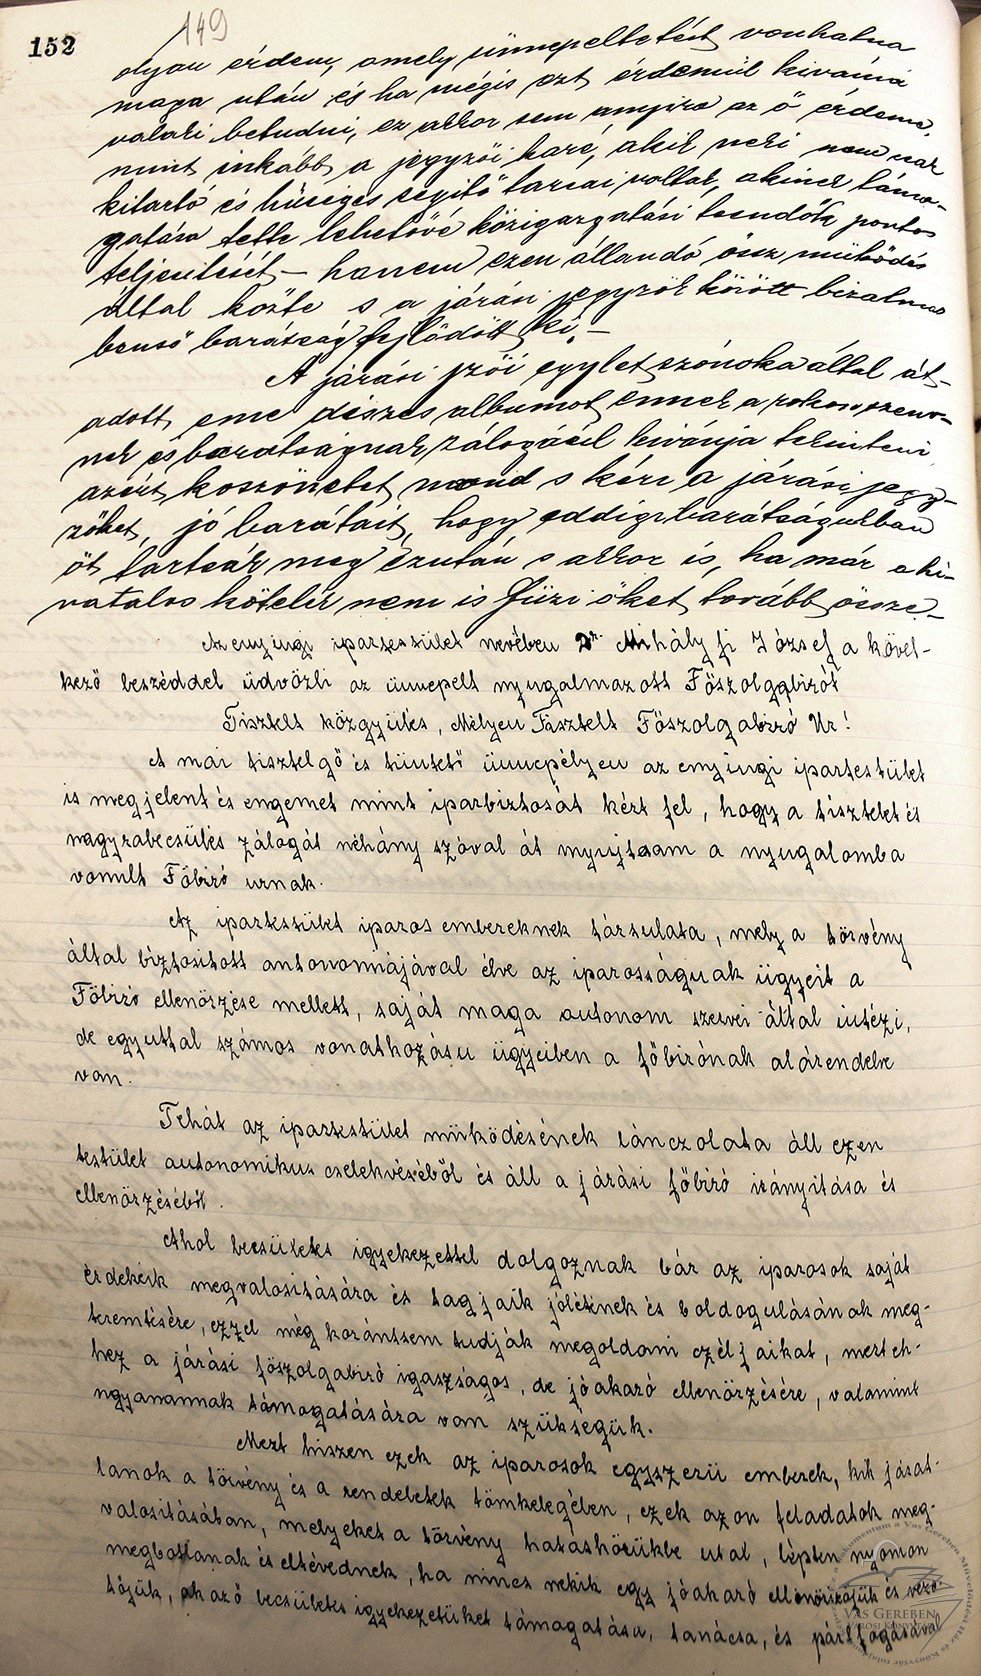 152
149
olyan érdem, amely ünnepeltetést vonhatna
maga után és ha mégis ezt érdemül kivánná
valaki betudni, ez akkor sem annyira az ő érdeme,
mint inkább a jegyzői karé, akik neki nemcsak
kitartó és hűséges segítő társai voltak, akinek támo-
gatása tette lehetővé közigazgatási teendők pontos
teljesítését – hanem ezen állandó össz működés
által közte s a járási jegyzők között bizalmas
benső barátság fejlődött ki. –
A járási jzői egylet szónoka által át-
adott, eme díszes albumot ennek a rokonszenv-
nek és barátságnak zálogáúl kivánja tekinteni
azért köszönetet mond s kéri a járási jegy-
zőket, jó barátait, hogy eddigi barátságukban
őt tartsák meg ezután s akkor is, ha már a hi-
vatalos kötelék nem is fűzi őket tovább össze. –
Az enyingi ipartestület nevében Dr. Mihályfi József a követ-
kező beszéddel üdvözli az ünnepelt nyugalmazott Főszolgabirót
Tisztelt közgyülés, Mélyen Tisztelt Főszolgabiró Ur!
A mai tisztelgő és tüntető ünnepélyen az enyingi ipartestület
is megjelent és engemet mint iparbiztosát kért fel, hogy a tisztelet és
nagyrabecsülés zálogát néhány szóval át nyujtsam a nyugalomba
vonult Főbiró urnak.
Az ipartestület iparos embereknek társulata, mely a törvény
által biztositott autonomiájával élve az iparosságnak ügyeit a
Főbiró ellenőrzése mellett, saját maga autonom szervei által intézi,
de egyuttal számos vonatkozásu ügyeiben a főbirónak alárendelve
van.
Tehát az ipartestület müködésének lánczolata áll ezen
testület autonomikus cselekvéséből és áll a járási főbiró irányitása és
ellenőrzéséből.
Ahol becsületes igyekezettel dolgoznak bár az iparosok saját
érdekeik megvalositására és tagjaik jólétének és boldogulásának meg-
teremtésére, ezzel még korántsem tudják megoldani czéljaikat, mert eh-
hez a járási főszolgabiró igazságos, de jóakaró ellenőrzésére, valamint
ugyanannak támogatására van szükségük.
Mert hiszen ezek az iparosok egyszerü emberek, kik járat-
lanok a törvény és a rendeletek tömkelegében, ezek azon feladatok meg-
valositásában, melyeket a törvény hatáskörükbe utal, lépten nyomon
megbotlanak és eltévednek, ha nincs nekik egy jóakaró ellenőrizőjük és veze-
tőjük, aki aző becsületes igyekezetüket támogatása, tanácsa, és pártfogásával
VAS GEREBEN
VÁROSI KÖNYVTÁR